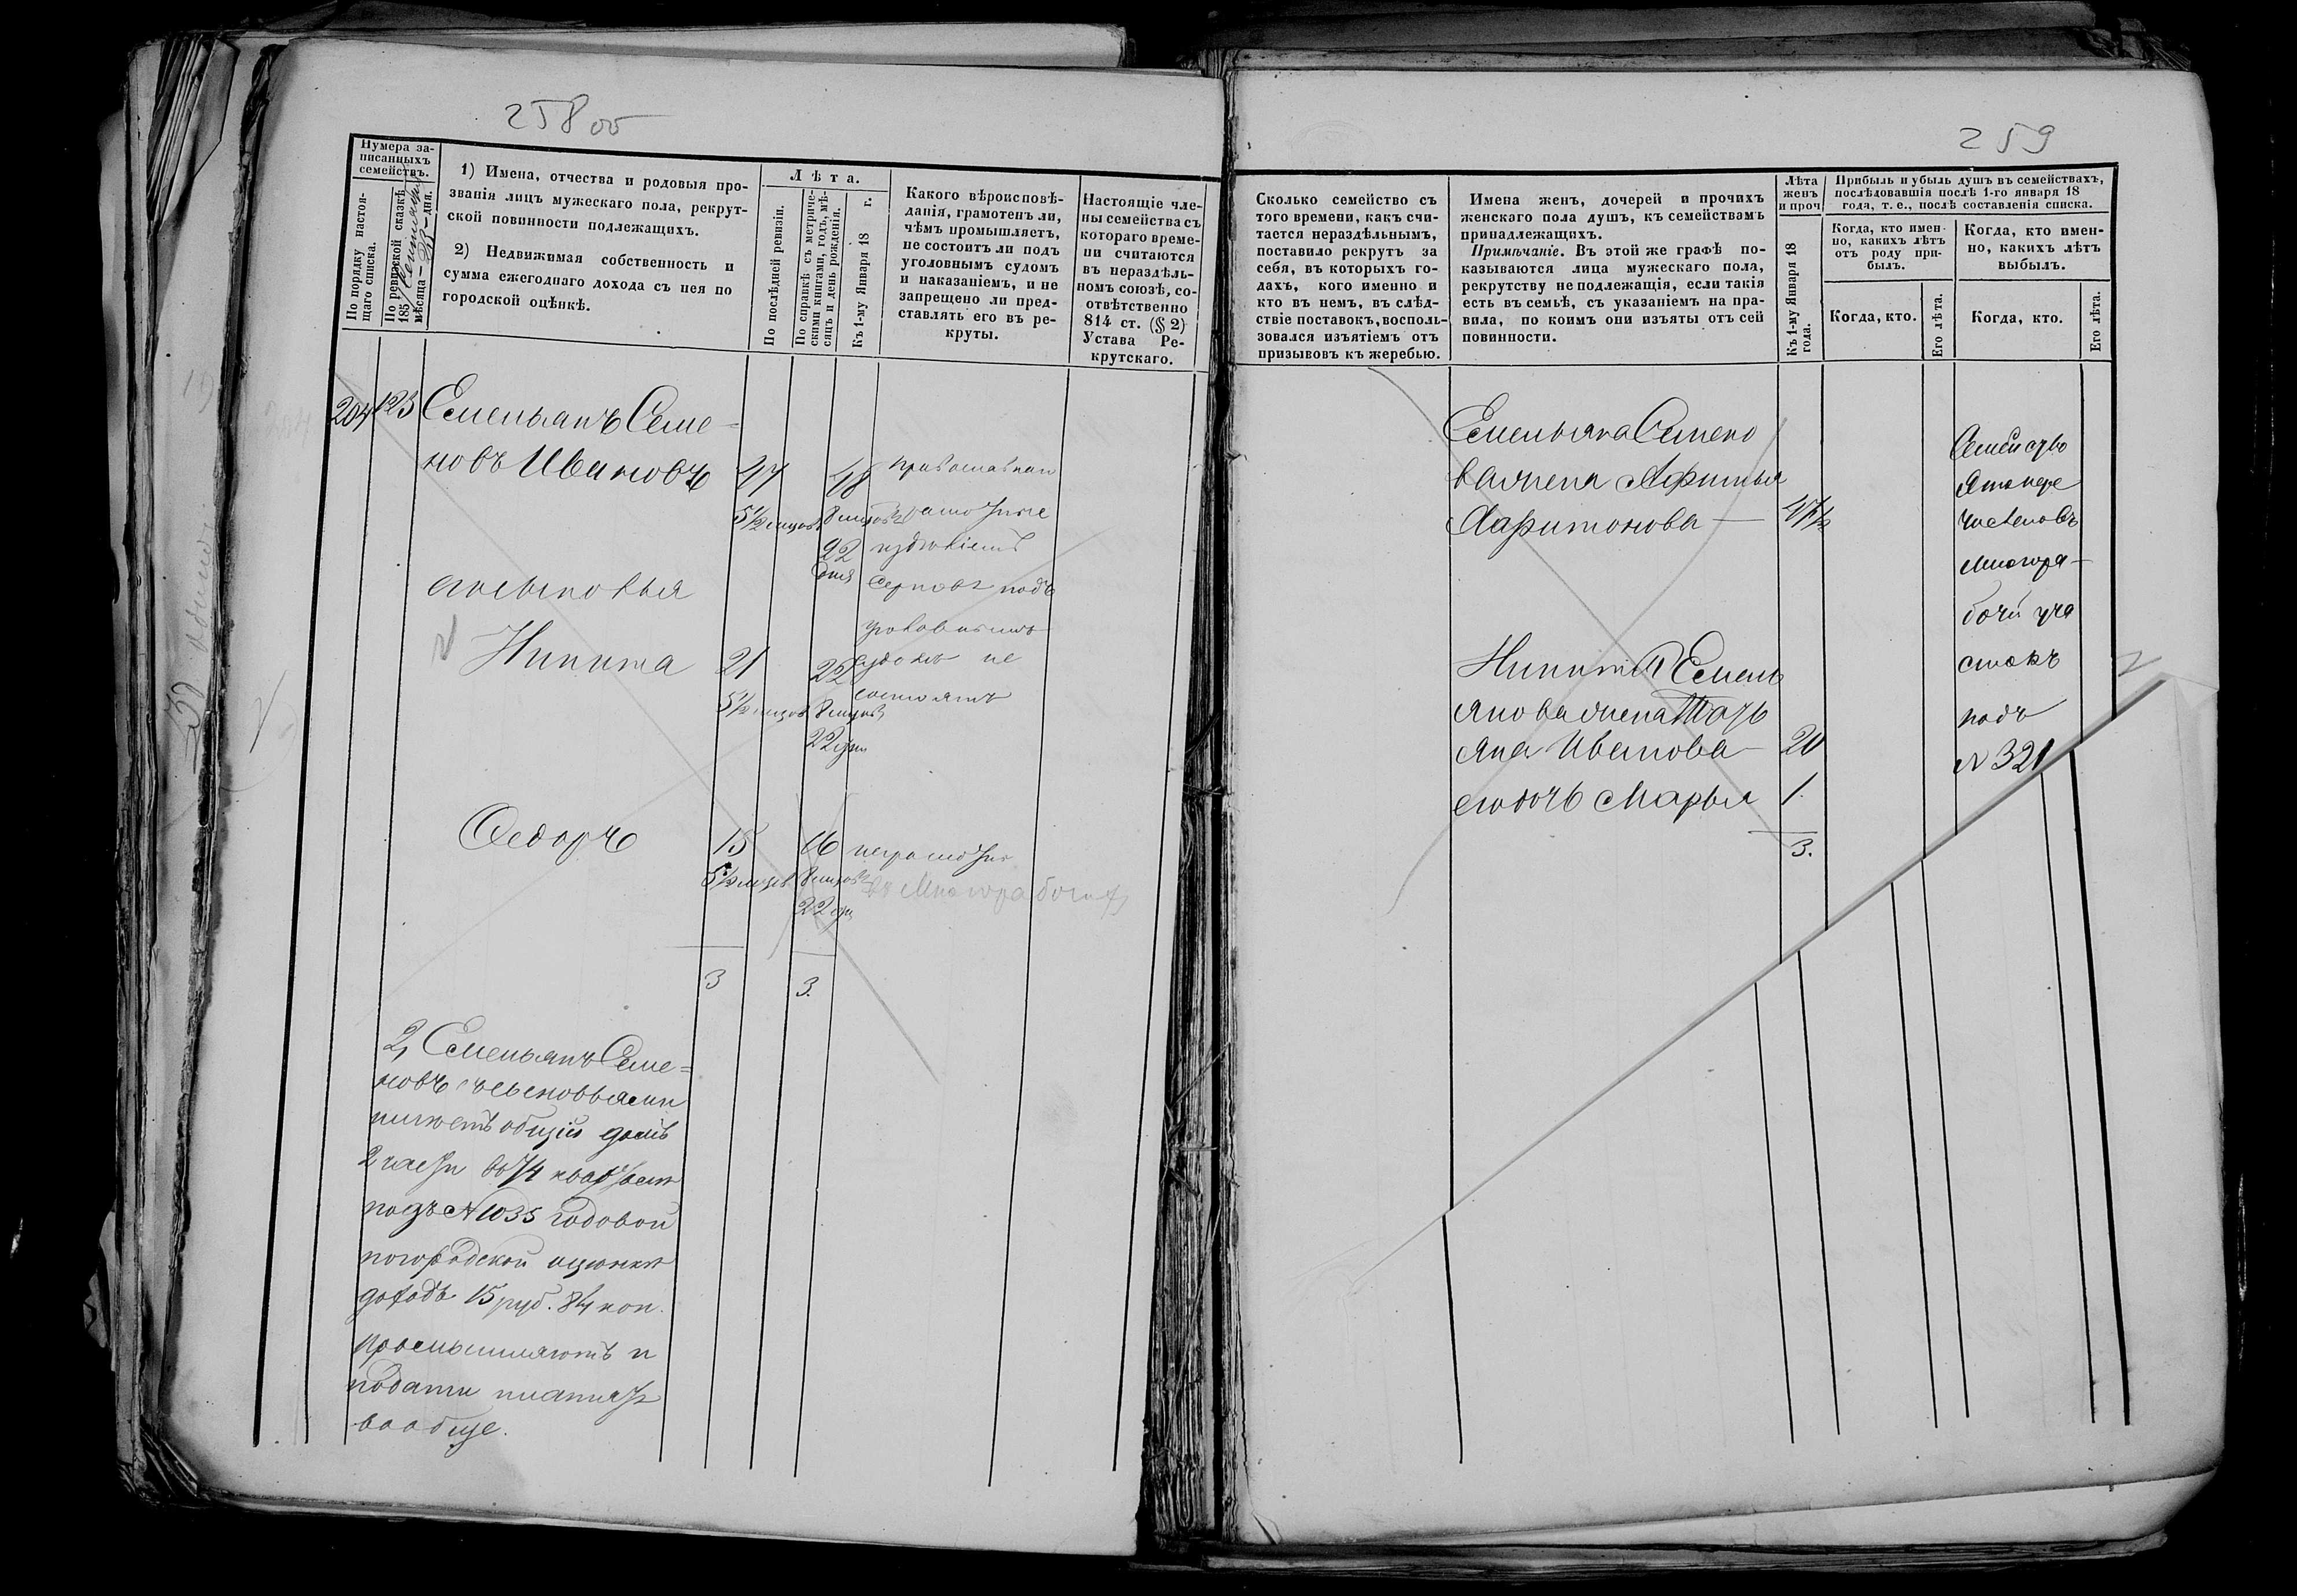 258 об
Нумера за-
писанныхъ
семействъ.
По порядку настоя-
щаго списка.
По ревизской сказкѣ
185
мѣсяца — дня.
1) Имена, отчества и родовыя про-
званія лицъ мужескаго пола, рекрут-
ской повинности подлежащихъ.
2) Недвижимая собственность и
сумма ежегоднаго дохода съ нея по
городской оцѣнкѣ.
Лѣта.
По послѣдней ревизіи.
По справкѣ съ метриче-
скими книгами, годъ, мѣ-
сяцъ и день рожденія.
Къ 1-му Января 18 г.
Какого вѣроисповѣ-
данія, грамотенъ ли,
чѣмъ промышляетъ,
не состоитъ ли подъ
уголовнымъ судомъ
и наказаніемъ, и не
запрещено ли пред-
ставлять его въ ре-
круты.
Настоящіе чле-
ны семейства съ
котораго време-
ни считаются
въ нераздѣль-
номъ союзѣ, со-
отвѣтственно
814 ст. (§ 2)
Устава Ре-
крутскаго.
204 123 Емельянъ Семе-
новъ Ивановъ 47 48 православнаи
5½ мцовъ 8 мцовъ грамотные
22 дня издѣліемъ
серповъ подъ
сыновья
уголовнымъ
Никита 21 22 судомъ не
5½ мцовъ 8 мцовъ состоятъ
22 дни
Ѳедоръ 15 16 неграмотны
5½ мцовъ 8 мцовъ въ Многорабочих
22 дн
3 3.
2, Емельянъ Семе-
новъ съ сыновьями
имѣетъ общій домъ
2 части въ 74 кварталѣ
подъ № 1035 годовой
по городской оцѣнкѣ
доходъ 15 руб. 84 коп.
промышляютъ и
подати платятъ
вообще.
259
Сколько семейство съ
того времени, какъ счи-
тается нераздѣльнымъ,
поставило рекрутъ за
себя, въ которыхъ го-
дахъ, кого именно и
кто въ немъ, въ слѣд-
ствіе поставокъ, восполь-
зовался изъятіемъ отъ
призывовъ къ жеребью.
Имена женъ, дочерей и прочихъ
женскаго пола душъ, къ семействамъ
принадлежащихъ.
Примѣчаніе. Въ этой же графѣ по-
казываются лица мужескаго пола,
рекрутству не подлежащія, если такія
есть въ семьѣ, съ указаніемъ на пра-
вила, по коимъ они изъяты отъ сей
повинности.
Лѣта
женъ
и проч
Къ 1-му Января 18
года.
Прибыль и убыль душъ въ семействахъ,
послѣдовавшія послѣ 1-го января 18
года, т. е., послѣ составленія списка.
Когда, кто имен-
но, какихъ лѣтъ
отъ роду при-
былъ.
Когда, кто имен-
но, какихъ лѣтъ
выбылъ.
Когда, кто.
Его лѣта.
Когда, кто.
Его лѣта.
Емельяна Семено
ва жена Афимья
Харитонова — 47½
Никиты Емель
янова жена Тать
яна Иванова — 20
его дочь Марья 1.
3.
Семейство
это пере
числено въ
многора-
бочій уча
стокъ
подъ
№ 321